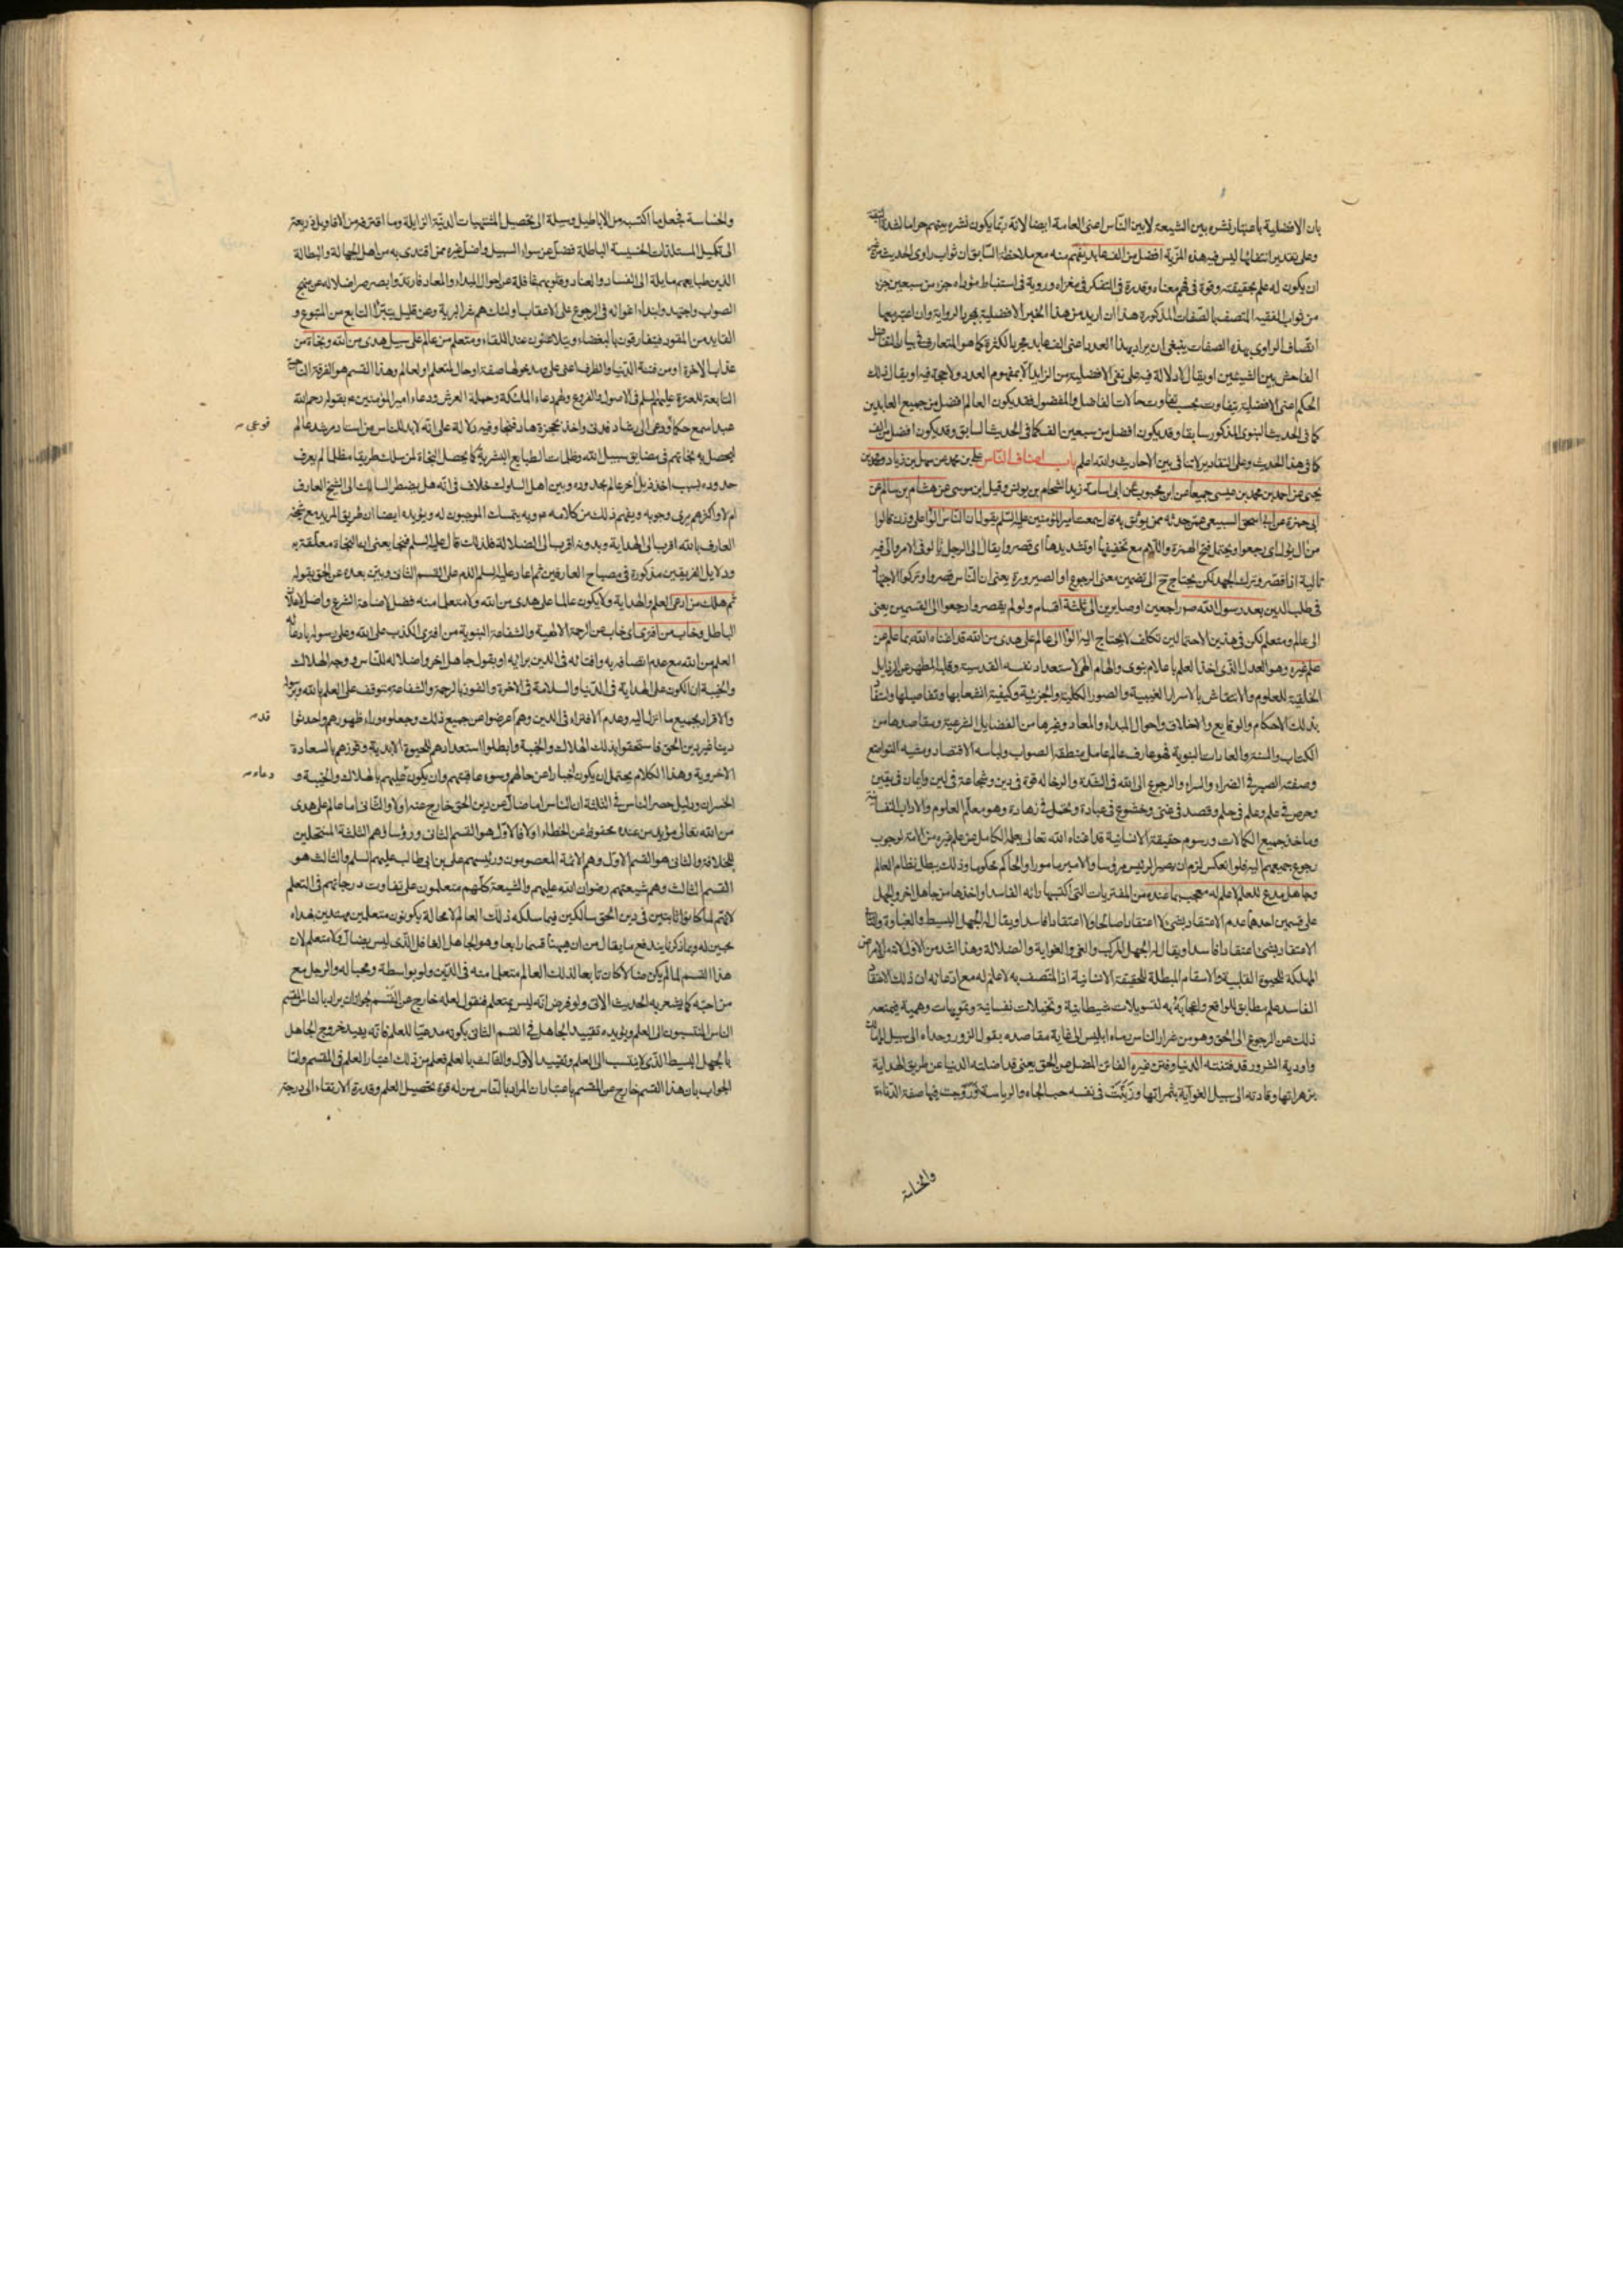 بان الافضلية باعتبار نشره بين الشيعة لا بين الناس اعنى العامة ايضا لانه ربما يكون نشره بينهم حراما لشدة التقية
وعلى تقدير انتفائها ليس فيه هذه المزية افضل من الف عابد يفهم منه مع ملاحظة السابق ان ثواب راوى الحديث من غير
ان يكون له علم بحقيقته وقوة فى فهم معناه وقدرة فى التفكر فى مغزاه وروية فى استنباط مؤداه جزء من سبعين جزء
من ثواب الفقيه المتصف بالصفات المذكورة هذا ان اريد من هذا الخبر الافضلية بمجرد الرواية وان اعتبر فيها
اتصاف الراوى بهذه الصفات ينبغى ان يراد بهذا العدد اعنى الف عابد مجرد الكثرة كما هو المتعارف فى بيان التفاضل
الفاحش بين الشيئين او يقال لا دلالة فيه على نفى الافضلية من الزايد الا بمفهوم العدد ولا حجة فيه او يقال ذلك
الحكم اعنى الافضلية يتفاوت بحسب تفاوت حالات الفاضل والمفضول فقد يكون العالم افضل من جميع العابدين
كما فى الحديث النبوى المذكور سابقا وقد يكون افضل من سبعين الف كما فى الحديث السابق وقد يكون افضل من الف
كما فى هذا الحديث وعلى التقادير لا تنافى بين الاحاديث والله اعلم باب اصناف الناس على بن محمد عن سهل بن زياد ومحمد بن
يحيى عن احمد بن محمد بن عيسى جميعا عن ابن محبوب عن ابى اسامة زيد الشحام بن يونس وقيل ابن موسى عن هشام بن سالم عن
ابى حمزة عن ابى اسحق السبيعى عمن حدثه ممن يوثق به قال سمعت امير المؤمنين عليه السلم يقول ان الناس آلوا على وزن قالوا
من آل يؤل اى رجعوا ويحتمل فتح الهمزة واللام مع تخفيفها او تشديدها اى قصروا يقال الى الرجل يألو فى الامر والى فيه
تالية اذا قصر وترك الجهد لكن يحتاج ح الى تضمين معنى الرجوع او الصيرورة يعنى ان الناس قصروا وتركوا الاجتهاد
فى طلب الدين بعد رسول الله ص راجعين او صايرين الى ثلثة اقسام ولو لم يقصروا رجعوا الى القسمين يعنى
الى عالم ومتعلم لكن فى هذين الاحتمالين تكلف لا يحتاج اليه آلوا الى عالم على هدى من الله قد اغناه الله بما علم عن
علم غيره وهو العدل الذى اخذ العلم باعلام نبوى والهام الهى لاستعداد نفسه القدسية وقلبه المطهر عن الرذايل
الخلقية للعلوم والانتقاش بالاسرار الغيبية والصور الكلية والجزئية وكيفية انشعابها وتفاصيلها
بذلك الاحكام والوقايع والاخلاق واحوال المبداء والمعاد وغيرها من الفضايل الشرعية ومقاصدها من
الكتاب والسنة والعادات النبوية فهو عارف عالم عامل منطقه الصواب ولباسه الاقتصاد ومشيه التواضع
وصفته الصبر فى الضراء والسراء والرجوع الى الله فى الشدة والرخا له قوة فى دين وشجاعة فى لين وايمان فى يقين
وحرص فى علم وعلم فى حلم وقصد فى غنى وخشوع فى عبادة وتجمل فى زهادة وهو معلم العلوم والاداب النفسانية
وماخذ جميع الكمالات ورسوم حقيقة الانسانية قد اغناه الله تعالى بعلمه الكامل عن علم غيره من الامة لوجوب
رجوع جميعهم اليه فلو انعكس لزم ان يصير الرئيس مرؤسا والامير مامورا والحاكم محكوما وذلك يبطل نظام العالم
وجاهل مدع للعلم لا علم له معجب بما عنده من المفتريات التى اكتسبها رائه الفاسد او اخذها من جاهل اخر والجهل
على قسمين احدهما عدم الاعتقاد بشئ لا اعتقادا صالحا ولا اعتقادا فاسدا ويقال له الجهل البسيط والغباوة والثانى
الاعتقاد بشئ اعتقادا فاسدا ويقال له الجهل المركب والغى والغواية والضلالة وهذا اشد من الاول لانه من الامراض
المهلكة للحيوة القلبية والاسقام المبطلة للحقيقة الانسانية اذ المتصف به لا علم له مع ادعائه ان ذلك الاعتقاد
الفاسد علم مطابق للواقع واعجابه به لتسويلات شيطانية وتخيلات نفسانية وتمويهات وهمية فيمنعه
ذلك عن الرجوع الى الحق وهو من اغرار الناس ماه ابليس الى غاية مقاصده بقول الزور وحداه الى سبيل
واودية الشرور قد فتنته الدنيا وفتن غيره الفاتن المضل عن الحق يعنى قد اضلته الدنيا عن طريق الهداية
بزهراتها وقادته الى سبيل الغواية بثمراتها وزينت فى نفسه حب الجاه والرياسة وروجت فيها صفة الدناءة
والخساسة
والخساسة فجعل ما اكتسبه من الاباطيل وسيلة الى تحصيل المشتهيات الدنية الزايلة وما اقترفه من الاقاويل ذريعة
الى تكميل المستلذات الخسيسة الباطلة فضل عن سواء السبيل واضل غيره ممن اقتدى به من اهل الجهالة والبطالة
الذين طبايعهم مايلة الى الفساد والعناد وقلوبهم غافلة عن احوال المبداء والمعاد فارتدوا بصرصر اضلاله عن منهج
الصواب واجتهد وابتداء اغوائه فى الرجوع على الاعقاب اولئك هم شر البرية وعن قليل يتبرأ التابع من المتبوع و
القايد من المقود فيتفارقون بالبغضاء ويتلاعنون عند اللقاء ومتعلم من عالم على سبيل هدى من الله ونجاة من
عذاب الاخرة او من فتنة الدنيا والظرف اعنى على ومدخولها صفة او حال لمتعلم او لعالم وهذا القسم هو الفرقة الناجية
التابعة للعترة عليهم السلم فى الاصول والفروع ولهم دعاء الملئكة وحملة العرش ودعاء امير المؤمنين ع بقوله رحم الله
عبدا سمع حكما ودعى الى رشاد فدنى واخذ بحجزة هاد فنجا وفيه دلالة على انه لابد للناس من استاد مرشد عالم
ليحصل به نجاتهم فى مضايق سبيل الله وظلمات الطبايع البشرية كما يحصل النجاة لمن سلك طريقا مظلما لم يعرف
حدوده بسبب اخذ ذيل آخر عالم بحدوده وبين اهل السلوك خلاف فى انه هل يضطر السالك الى الشيخ العارف
ام لا واكثرهم يرى وجوبه ويفهم ذلك من كلامه ع وبه يتمسك الموجبون له ويؤيده ايضا ان طريق المريد مع شيخه
العارف بالله اقرب الى الهداية وبدونه اقرب الى الضلالة فلذلك قال عليه السلم فنجا يعنى ان النجاة معلقة به
ودلايل الفريقين مذكورة فى مصباح العارفين ثم اعاد عليه السلم الذم على القسم الثانى وبين بعده عن الحق بقوله
ثم هلك من ادعى العلم والهداية ولا يكون عالما على هدى من الله ولا متعلما منه فضل لاضاعة الشرع واضل لاعلان
الباطل وخاب من افترى اى خاب عن الرحمة الالهية والشفاعة النبوية من افترى الكذب على الله وعلى رسوله بادعائه
العلم من الله مع عدم اتصافه به وافتائه فى الدين برايه او بقول جاهل اخر واضلاله للناس ووجه الهلاك
والخيبة ان الكون على الهداية فى الدنيا والسلامة فى الاخرة والفوز بالرحمة والشفاعة متوقف على العلم بالله وبرسوله
والاقرار بجميع ما انزل اليه وعدم الافتراء فى الدين وهم اعرضوا عن جميع ذلك وجعلوه وراء ظهورهم واحدثوا
دينا غير دين الحق فاستحقوا بذلك الهلاك والخيبة وابطلوا استعدادهم للحيوة الابدية وفوزهم بالسعادة
الاخروية وهذا الكلام يحتمل ان يكون اخبارا عن حالهم وسوء عاقبتهم وان يكون عليهم بالهلاك والخيبة و
الخسران ودليل حصر الناس فى الثلثة ان الناس اما ضال عن دين الحق خارج عنه اولا والثانى اما عالم على هدى
من الله تعالى مؤيد من عنده محفوظ عن الخطاء اولا فالاول هو القسم الثانى ورؤساؤهم الثلثة المنتحلين
للخلافة والثانى هو القسم الاول وهم الائمة المعصومون ورئيسهم على بن ابى طالب عليهم السلم والثالث هو
القسم الثالث وهم شيعتهم رضوان الله عليهم والشيعة كلهم متعلمون على تفاوت درجاتهم فى التعلم
لانهم لما كانوا ثابتين فى دين الحق سالكين فيما سلكه ذلك العالم لا محالة يكونون متعلمين مهتدين بهداه
محبين له وبما ذكرنا يندفع ما يقال من ان هيهنا قسما رابعا وهو الجاهل الغافل الذى ليس بضال ولا متعلم لان
هذا القسم لما لم يكن ضالا كان تابعا لذلك العالم متعلما منه فى الدين ولو بواسطة ومحبا له والرجل مع
من احبه كما يشعر به الحديث الاتى ولو فرض انه ليس بمتعلم فنقول لعله خارج عن القسم لجواز ان يراد بالناس المقسم
الناس المنتسبون الى العلم ويؤيده تقييد الجاهل فى القسم الثانى بكونه مدعيا للعلم فانه يفيد خروج الجاهل
بالجهل البسيط الذى لا ينتسب الى العلم وتقييد الاول والثالث بالعلم فعلم من ذلك اعتبار العلم فى المقسم واما
الجواب بان هذا القسم خارج عن المقسم باعتبار ان المراد بالناس من له قوة تحصيل العلم وقدرة الارتقاء الى درجة